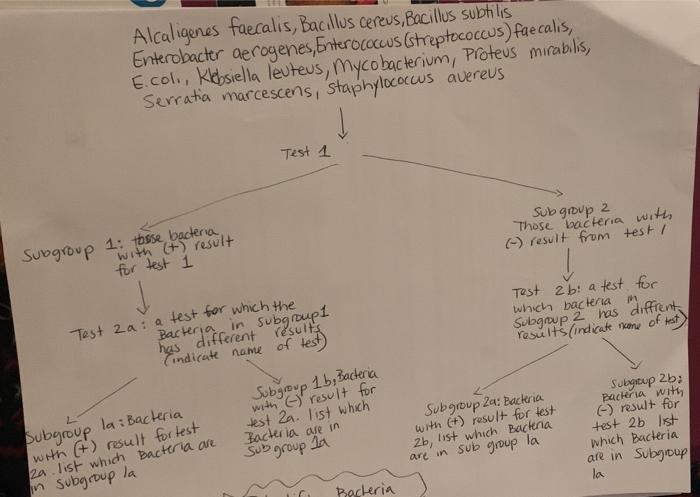 Alcaligenes faecalis, Bacillus cereus, Bacillus subtilis
Enterobacter aerogenes, Enterococcus (streptococcus) faecalis,
E.coli, Klebsiella leuteus, Mycobacterium, Proteus mirabilis,
Serratia marcescens, Staphylococcus auereus
Test 1
Subgroup 1: those bacteria
with (+) result
for test 1
Subgroup 2
Those bacteria with
(-) result from test 1
Test 2a: a test for which the
Bacteria in subgroup1
has different results
(indicate name of test)
Test 2b: a test for
which bacteria in
Subgroup 2 has diffrent
results (indicate name of test)
Subgroup 1a: Bacteria
with (+) result for test
2a. list which Bacteria are
in Subgroup 1a
Subgroup 1b: Bacteria
with (-) result for
test 2a. list which
Bacteria are in
Subgroup 1a
Subgroup 2a: Bacteria
with (+) result for test
2b, list which Bacteria
are in sub group 1a
Subgroup 2b:
Bacteria with
(-) result for
test 2b list
which Bacteria
are in Subgroup
1a
Bacteria